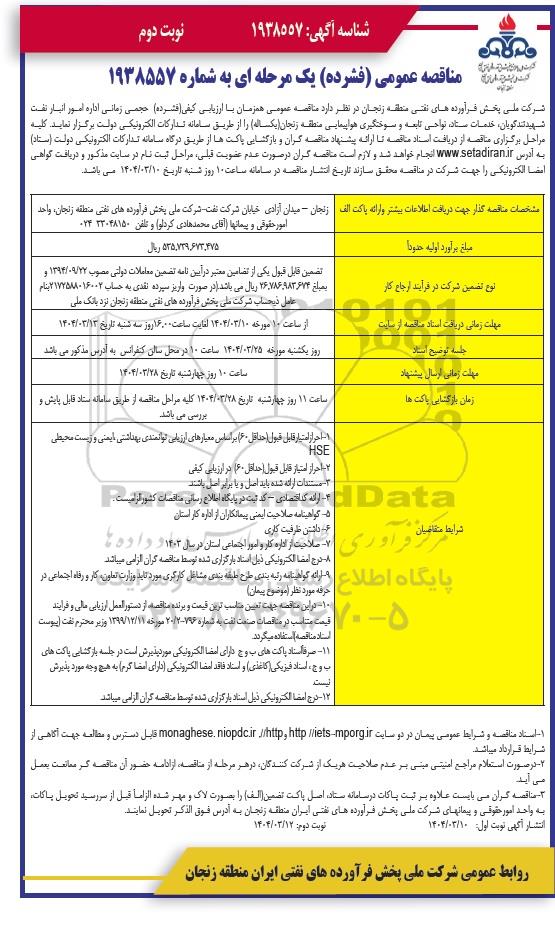 شناسه آگهی: ۱۹۳۸۵۵۷
نوبت دوم
مناقصه عمومی (فشرده) یک مرحله ای به شماره ۱۹۳۸۵۵۷
شرکت ملی پخش فرآورده های نفتی منطقه زنجان در نظر دارد مناقصه عمومی همزمان با ارزیابی کیفی(فشرده) حجمی زمانی اداره امور انبار نفت
شهیدتندگویان، خدمات ستاد، نواحی تابعه و سوختگیری هواپیمایی منطقه زنجان(یکساله) را از طریق سامانه تدارکات الکترونیکی دولت برگزار نماید. کلیه
مراحل برگزاری مناقصه از دریافت اسناد مناقصه تا ارائه پیشنهاد مناقصه گران و بازگشایی پاکت ها از طریق درگاه سامانه تدارکات الکترونیکی دولت (ستاد)
به آدرس www.setadiran.ir انجام خواهد شد و لازم است مناقصه گران درصورت عدم عضویت قبلی، مراحل ثبت نام در سایت مذکور و دریافت گواهی
امضا الکترونیکی را جهت شرکت در مناقصه محقق سازند تاریخ انتشار مناقصه در سامانه ساعت ۱۰ روز شنبه تاریخ ۱۴۰۴/۰۳/۱۰ می باشد.
مشخصات مناقصه گذار جهت دریافت اطلاعات بیشتر وارائه پاکت الف
زنجان – میدان آزادی خیابان شرکت نفت-شرکت ملی پخش فرآورده های نفتی منطقه زنجان، واحد
امورحقوقی و پیمانها (آقای محمدهادی کردلو) و تلفن ۳۳۰۴۸۱۵۰ ۰۲۴
مبلغ برآورد اولیه حدوداً
۵۳۵,۷۳۹,۶۷۳,۴۷۵ ریال
نوع تضمین شرکت در فرآیند ارجاع کار
تضمین قابل قبول یکی از تضامین معتبر درآیین نامه تضمین معاملات دولتی مصوب ۱۳۹۴/۰۹/۲۲ و
بمبلغ ۲۶,۷۸۶,۹۸۳,۶۷۴ ریال می باشد.(در صورت واریز سپرده نقدی به حساب ۲۱۷۲۵۸۸۰۱۶۰۰۲بنام
عامل ذیحساب شرکت ملی پخش فرآورده های نفتی منطقه زنجان نزد بانک ملی
مهلت زمانی دریافت اسناد مناقصه از سایت
از ساعت ۱۰ مورخه ۱۴۰۴/۰۳/۱۰ لغایت ساعت۱۶,۰۰روز سه شنبه تاریخ ۱۴۰۴/۰۳/۱۳
جلسه توضیح اسناد
روز یکشنبه مورخه ۱۴۰۴/۰۳/۲۵ ساعت ۱۰ در محل سالن کنفرانس به آدرس مذکور می باشد
مهلت زمانی ارسال پیشنهاد
ساعت ۱۰ روز چهارشنبه تاریخ ۱۴۰۴/۰۳/۲۸
زمان بازگشایی پاکت ها
ساعت ۱۱ روز چهارشنبه تاریخ ۱۴۰۴/۰۳/۲۸ کلیه مراحل مناقصه از طریق سامانه ستاد قابل پایش و
بررسی می باشد.
شرایط متقاضیان
۱-احراز امتیاز قابل قبول(حداقل۶۰) براساس معیارهای ارزیابی توانمندی بهداشتی ،ایمنی و زیست محیطی
HSE
۲-احراز امتیاز قابل قبول(حداقل۶۰) در ارزیابی کیفی
۳-مستندات ارائه شده باید اصل و یا برابر اصل باشند.
۴- ارائه کداقتصادی – کد ثبت در پایگاه اطلاع رسانی مناقصات کشور الزامیست .
۵- گواهینامه صلاحیت ایمنی پیمانکاران از اداره کار استان
۶- داشتن ظرفیت کاری
۷- صلاحیت از اداره کار و امور اجتماعی استان در سال ۱۴۰۳
۸-درج امضا الکترونیکی ذیل اسناد بارگزاری شده توسط مناقصه گران الزامی میباشد.
۹-ارائه گواهینامه رتبه بندی طرح طبقه بندی مشاغل کارگری مورد تایید وزارت تعاون، کار و رفاه اجتماعی در
حرفه مورد نظر (موضوع پیمان)
۱۰-در این مناقصه جهت تعیین مناسب ترین قیمت و برنده مناقصه، از دستورالعمل ارزیابی مالی و فرایند
قیمت متناسب در مناقصات صنعت نفت به شماره ۷۹۶-۲۰/۲ مورخه ۱۳۹۹/۱۲/۱۱ وزیر محترم نفت (پیوست
اسناد مناقصه)استفاده میگردد.
۱۱- صرفاًاسناد پاکت های ب و ج دارای امضا الکترونیکی موردپذیرش است در جلسه بازگشایی پاکت های
ب و ج ، اسناد فیزیکی(کاغذی) و اسناد فاقد امضا الکترونیکی (دارای امضا گرم) به هیچ وجه مورد پذیرش
نیست.
۱۲-درج امضا الکترونیکی ذیل اسناد بارگزاری شده توسط مناقصه گران الزامی میباشد.
ParsNamadData
پایگاه اطلاع رسانی مناقصه و مزایده
۱-اسناد مناقصه و شرایط عمومی پیمان در دو سایت http //iets-mporg.ir وhttp //, monaghese. niopdc.ir قابل دسترس و مطالعه جهت آگاهی از
شرایط قرارداد میباشد.
۲-درصورت استعلام مراجع امنیتی مبنی بر عدم صلاحیت هریک از شرکت کنندگان، درهر مرحله از مناقصه، ازادامه حضور آن مناقصه گر ممانعت بعمل
می آید.
۳-مناقصه گران می بایست علاوه بر ثبت پاکات درسامانه ستاد، اصل پاکت تضمین(الف) را بصورت لاک و مهر شده الزاماً قبل از سررسید تحویل پاکات،
به واحد امورحقوقی و پیمانهای شرکت ملی پخش فرآورده های نفتی ایران منطقه زنجان به آدرس فوق الذکر تحویل نمایند.
انتشار آگهی نوبت اول: ۱۴۰۴/۰۳/۱۰ نوبت دوم: ۱۴۰۴/۰۳/۱۲
روابط عمومی شرکت ملی پخش فرآورده های نفتی ایران منطقه زنجان